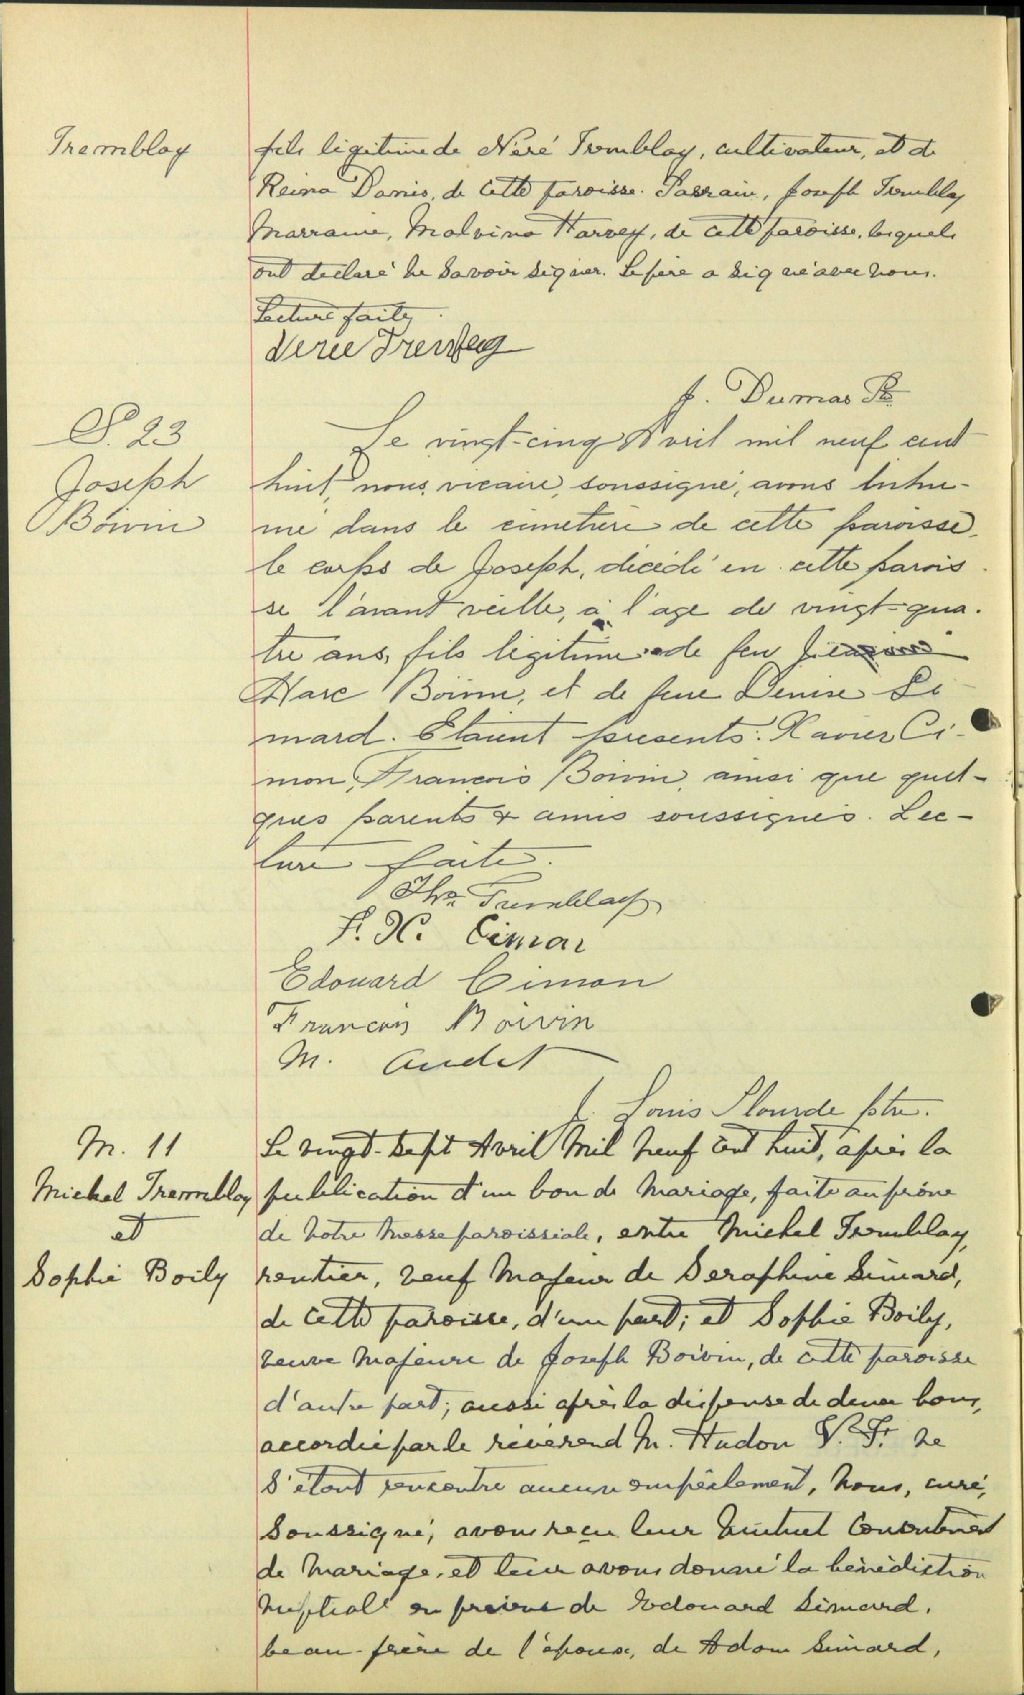 Tremblay
fils légitime de Néré Tremblay, cultivateur, et de
Reina Danis, de cette paroisse. Parrain, Joseph Tremblay
Marraine, Malvina Harvey, de cette paroisse, lesquels
ont déclaré ne savoir signer. Le père a signé avec nous.
Lecture faite.
Nérée Tremblay
J. Dumas Ptre
S. 23
Joseph
Boivin
Le vingt-cinq Avril mil neuf cent
huit, nous, vicaire, soussigné, avons inhu-
mé dans le cimetière de cette paroisse,
le corps de Joseph, décédé en cette parois
se l'avant veille, à l'age de vingt-qua-
tre ans, fils légitime de feu
Marc Boivin, et de feue Denise Si
mard. Etaient présents: Xavier Ci-
mon, François Boivin, ainsi que quel-
ques parents & amis soussignés. Lec-
ture faite.
Ths Tremblay
F. X. Cimon
Edouard Cimon
François Boivin
M. Audet
J. Louis Plourde ptre.
M. 11
Michel Tremblay
et
Sophie Boily
Le vingt-sept Avril Mil neuf cent huit, après la
publication d'un ban de mariage, faite au prône
de notre messe paroissiale, entre Michel Tremblay,
rentier, veuf majeur de Seraphine Simard,
de cette paroisse, d'une part; et Sophie Boily,
veuve majeure de Joseph Boivin, de cette paroisse
d'autre part; aussi après la dispense de deux bans,
accordée par le révérend M. Hudon V. F. ne
s'étant rencontré aucun empêchement, nous, curé,
soussigné, avons reçu leur mutuel consentement
de mariage, et leur avons donné la bénédiction
nuptiale en présence de Edouard Simard,
beau-frère de l'époux, de Adam Simard,